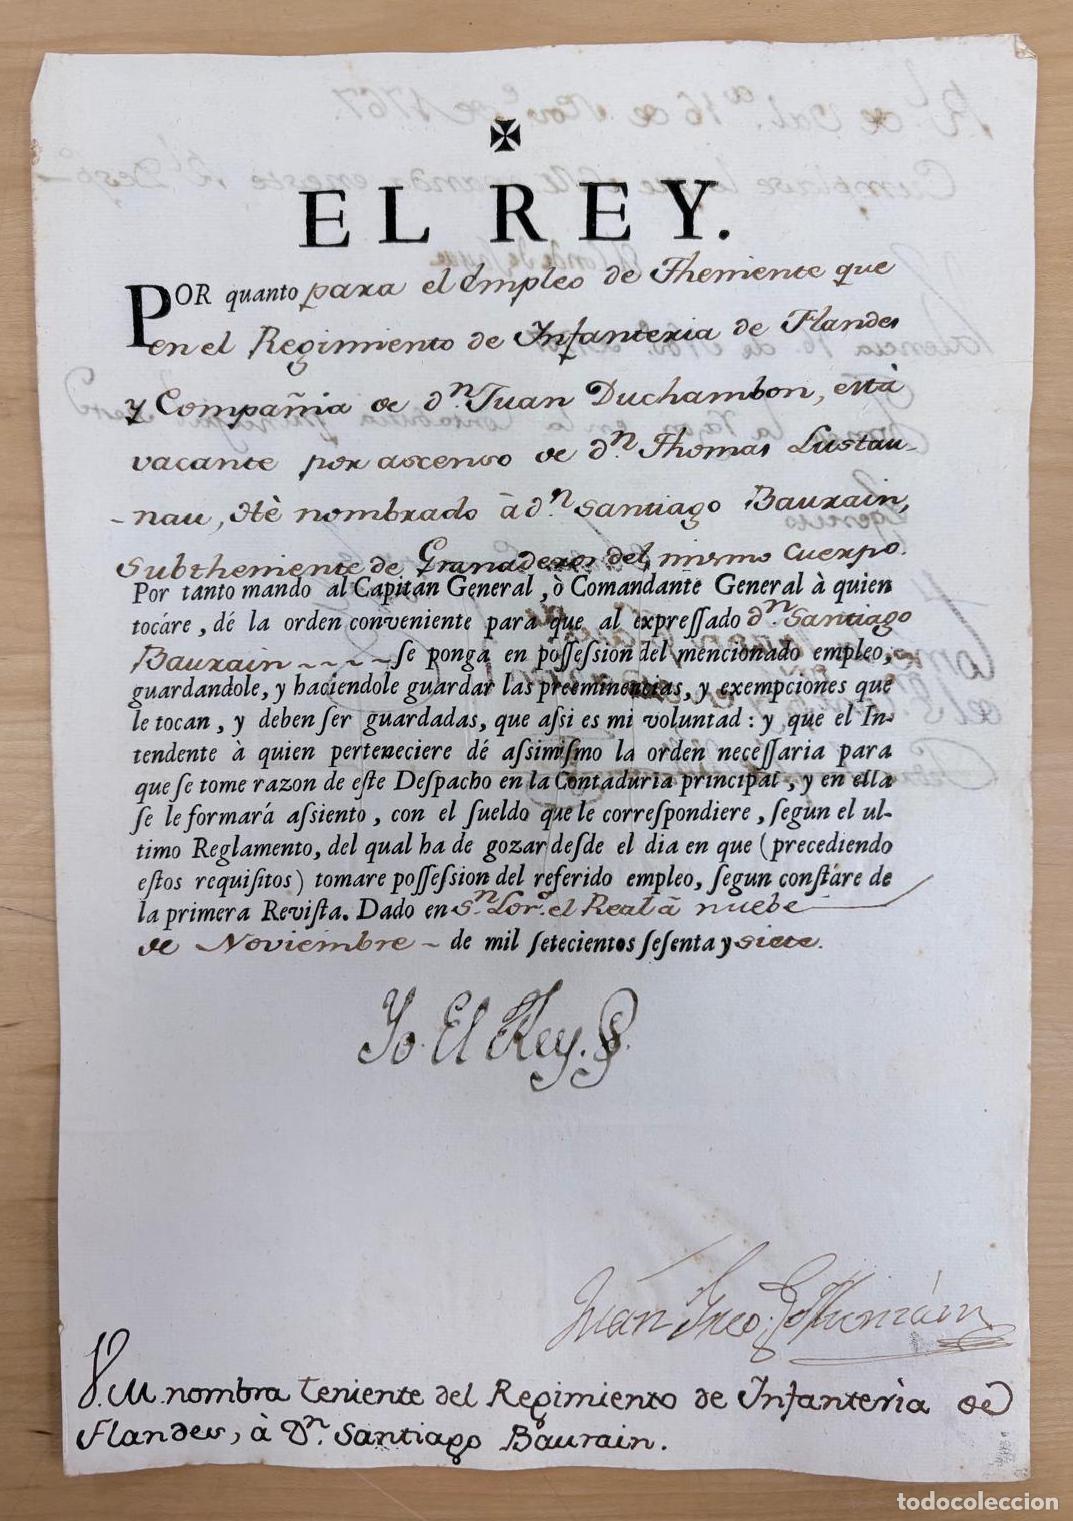 ✠
EL REY.
POR quanto para el Empleo de Theniente que
en el Regimiento de Infanteria de Flandes
y Compañia de dⁿ. Juan Duchambon, està
vacante por ascenso de dⁿ. Thomas Lustau-
-nau, Hè nombrado à dⁿ Santiago Baurain,
Subtheniente de Granaderos del mismo Cuerpo.
Por tanto mando al Capitan General, ò Comandante General à quien
tocáre, dé la orden conveniente para que al expreſſado dⁿ. Santiago
Baurain ~ ~ ~ ~ ſe ponga en poſſeſsion del mencionado empleo,
guardandole, y haciendole guardar las preeminencias, y exempciones que
le tocan, y deben ſer guardadas, que aſsi es mi voluntad: y que el In-
tendente à quien perteneciere dé aſsimiſmo la orden neceſſaria para
que ſe tome razon de eſte Deſpacho en la Contaduria principal, y en ella
ſe le formará aſsiento, con el ſueldo que le correſpondiere, ſegun el ul-
timo Reglamento, del qual ha de gozar deſde el dia en que (precediendo
eſtos requiſitos) tomare poſſeſsion del referido empleo, ſegun conſtáre de
la primera Reviſta. Dado en Sⁿ. Lorᵒ. el Real à nuebe
de Noviembre ~ de mil ſetecientos ſeſenta y siete.
Yo El Rey.
Juan
V. M. nombra Teniente del Regimiento de Infanterìa de
Flandes, à Dⁿ. Santiago Baurain.
todocoleccion